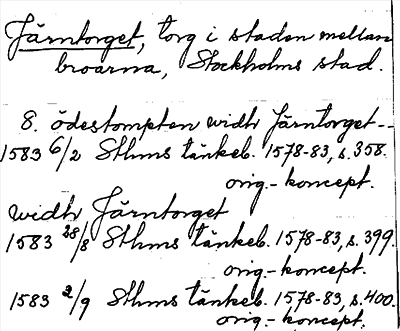 Järntorget, torg i staden mellan
broarna, Stockholms stad.
8. ödestompten widh Järntorget--
1583 6/2 Sthms tänkeb. 1578-83, s. 358.
orig.-koncept.
widh Järntorget
1583 28/8 Sthms tänkeb. 1578-83, s. 399.
orig.-koncept.
1583 2/9 Sthms tänkeb. 1578-83, s. 400.
orig.-koncept.